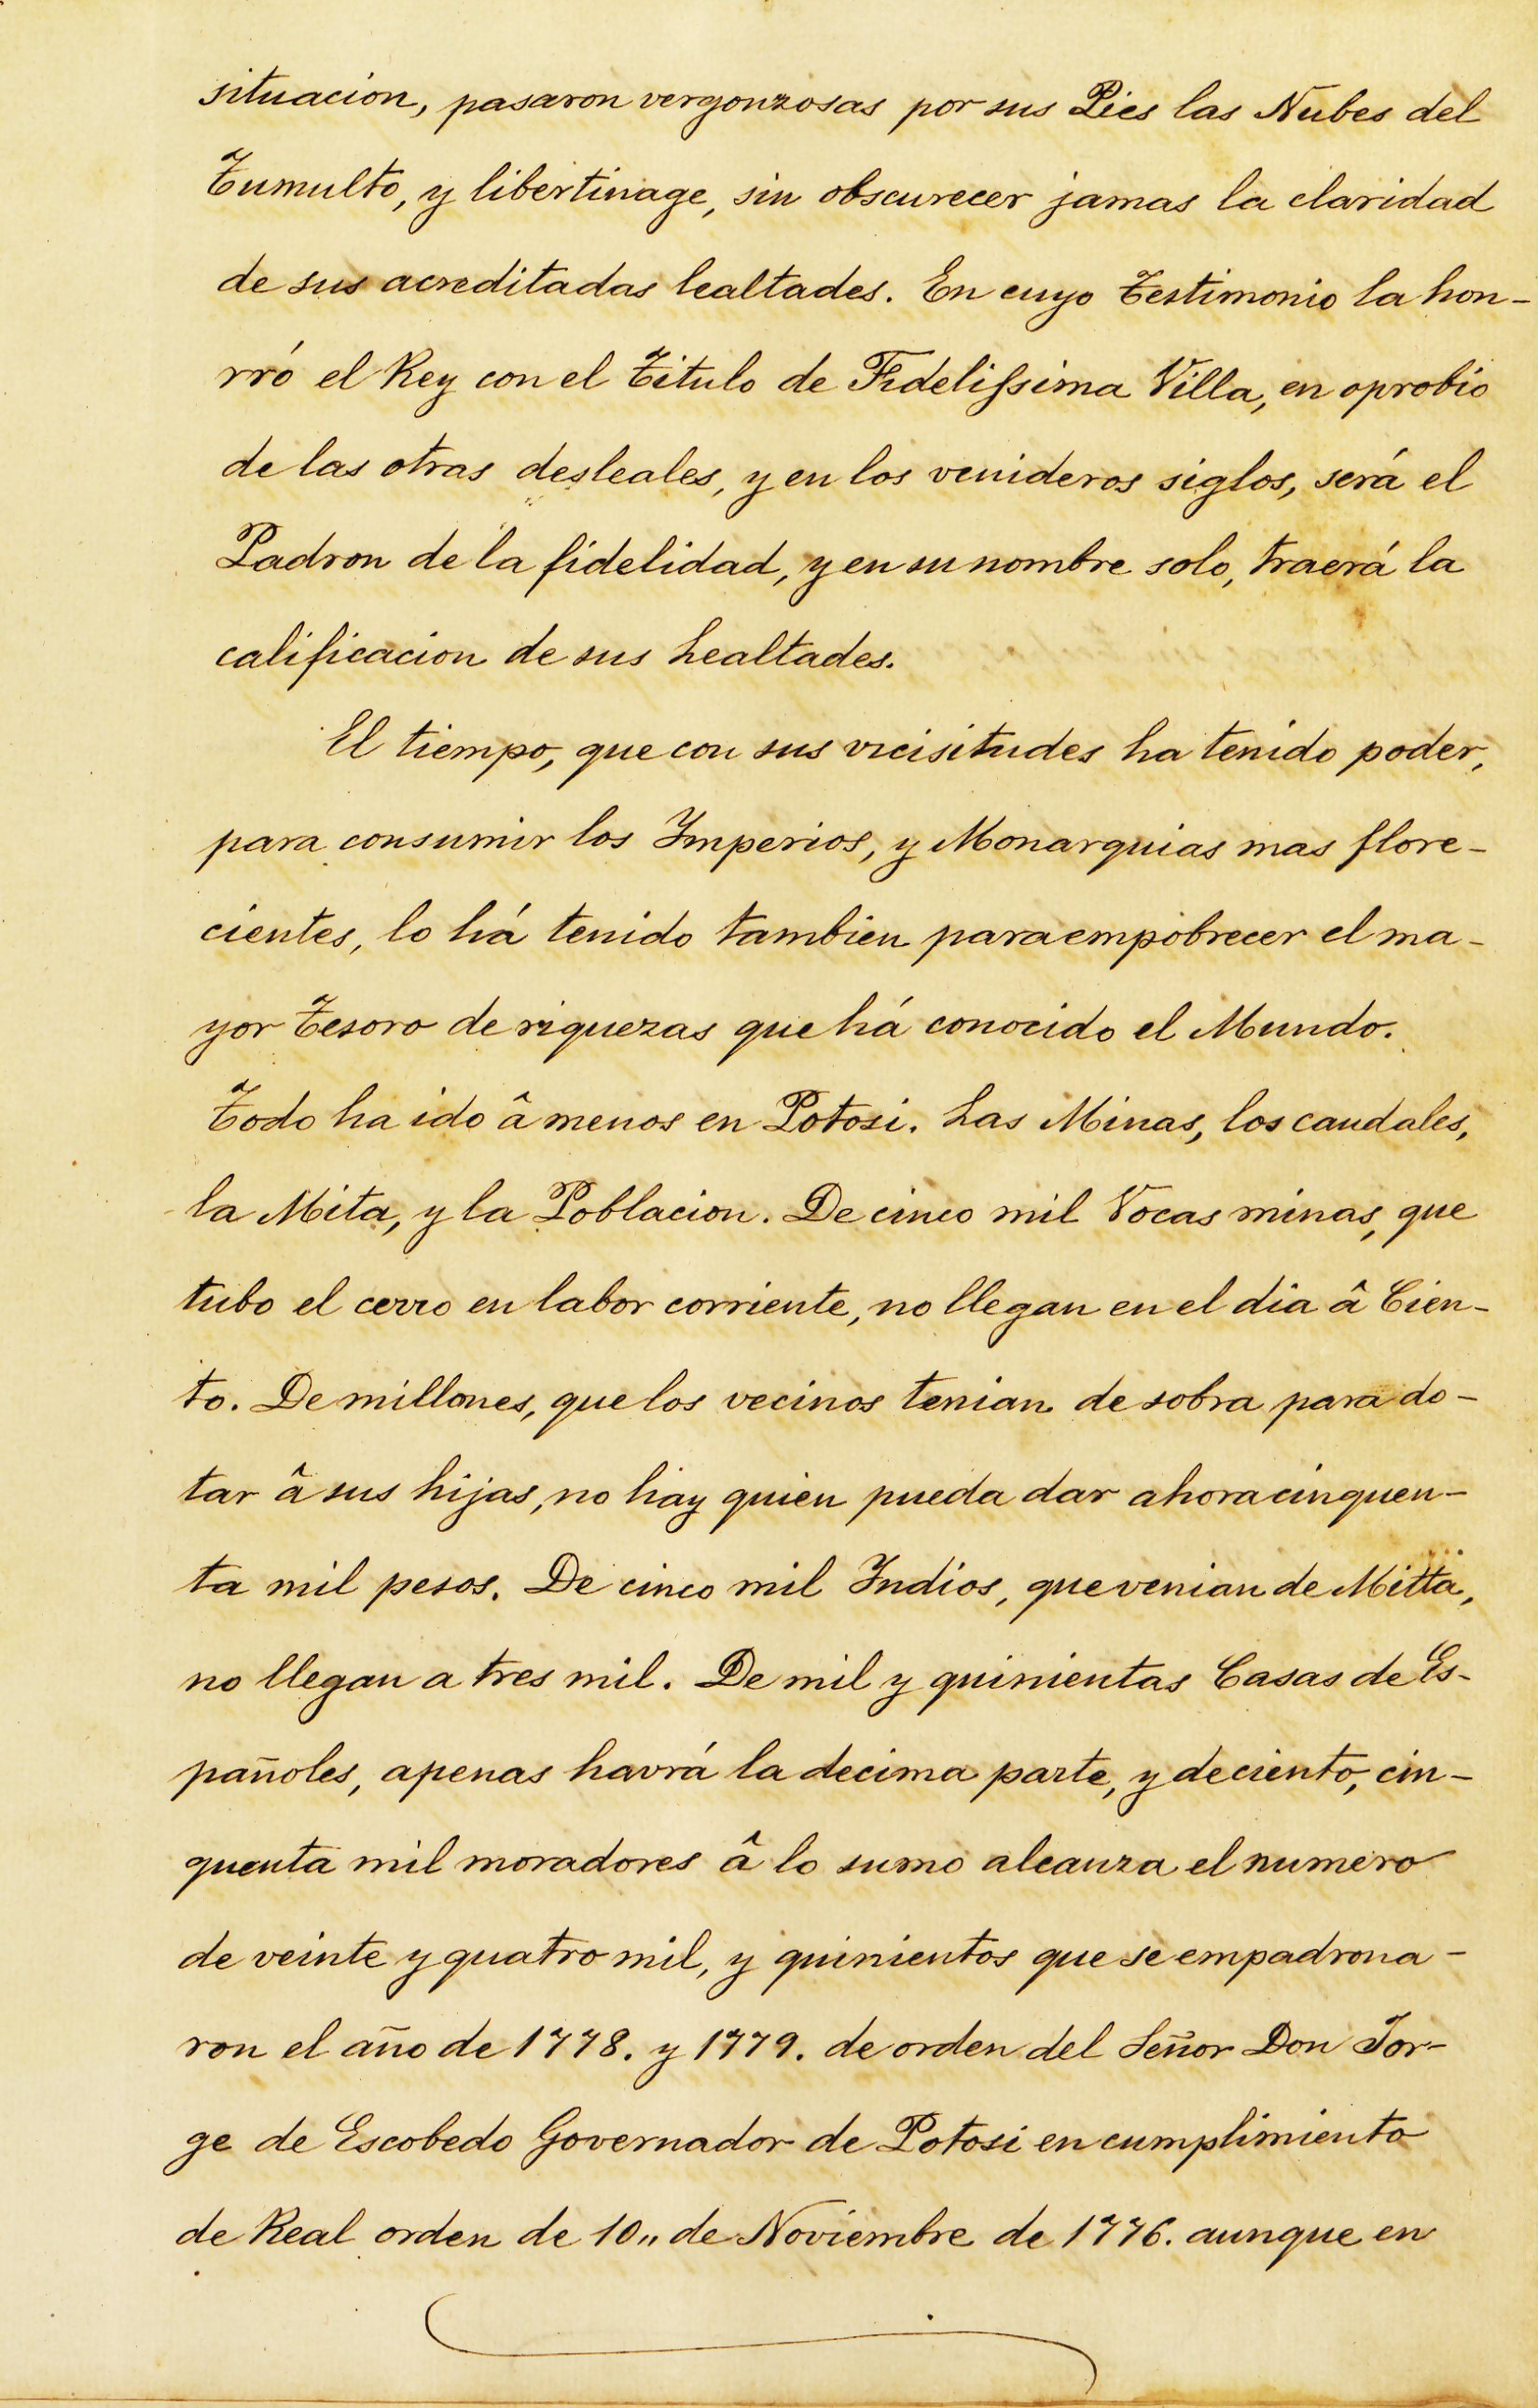 situacion, pasaron vergonzosas por sus Pies las Nubes del
Tumulto, y libertinage, sin obscurecer jamas la claridad
de sus acreditadas lealtades. En cuyo Testimonio la hon-
rró el Rey con el Titulo de Fidelissima Villa, en oprobio
de las otras desleales, y en los venideros siglos, será el
Padron de la fidelidad, y en su nombre solo, traerá la
calificacion de sus Lealtades.
El tiempo, que con sus vicisitudes ha tenido poder,
para consumir los Imperios, y Monarquias mas flore-
cientes, lo há tenido tambien para empobrecer el ma-
yor Tesoro de riquezas que há conocido el Mundo.
Todo ha ido â menos en Potosi. Las Minas, los caudales,
la Mita, y la Poblacion. De cinco mil Vocas minas, que
tubo el cerro en labor corriente, no llegan en el dia â Cien-
to. De millones, que los vecinos tenian de sobra para do-
tar â sus hijas, no hay quien pueda dar ahora cinquen-
ta mil pesos. De cinco mil Indios, que venian de Mitta,
no llegan a tres mil. De mil y quinientas Casas de Es-
pañoles, apenas havrá la decima parte, y de ciento, cin-
quenta mil moradores â lo sumo alcanza el numero
de veinte y quatro mil, y quinientos que se empadrona-
ron el año de 1778. y 1779. de orden del Señor Don Jor-
ge de Escobedo Governador de Potosi en cumplimiento
de Real orden de 10,, de Noviembre de 1776. aunque en